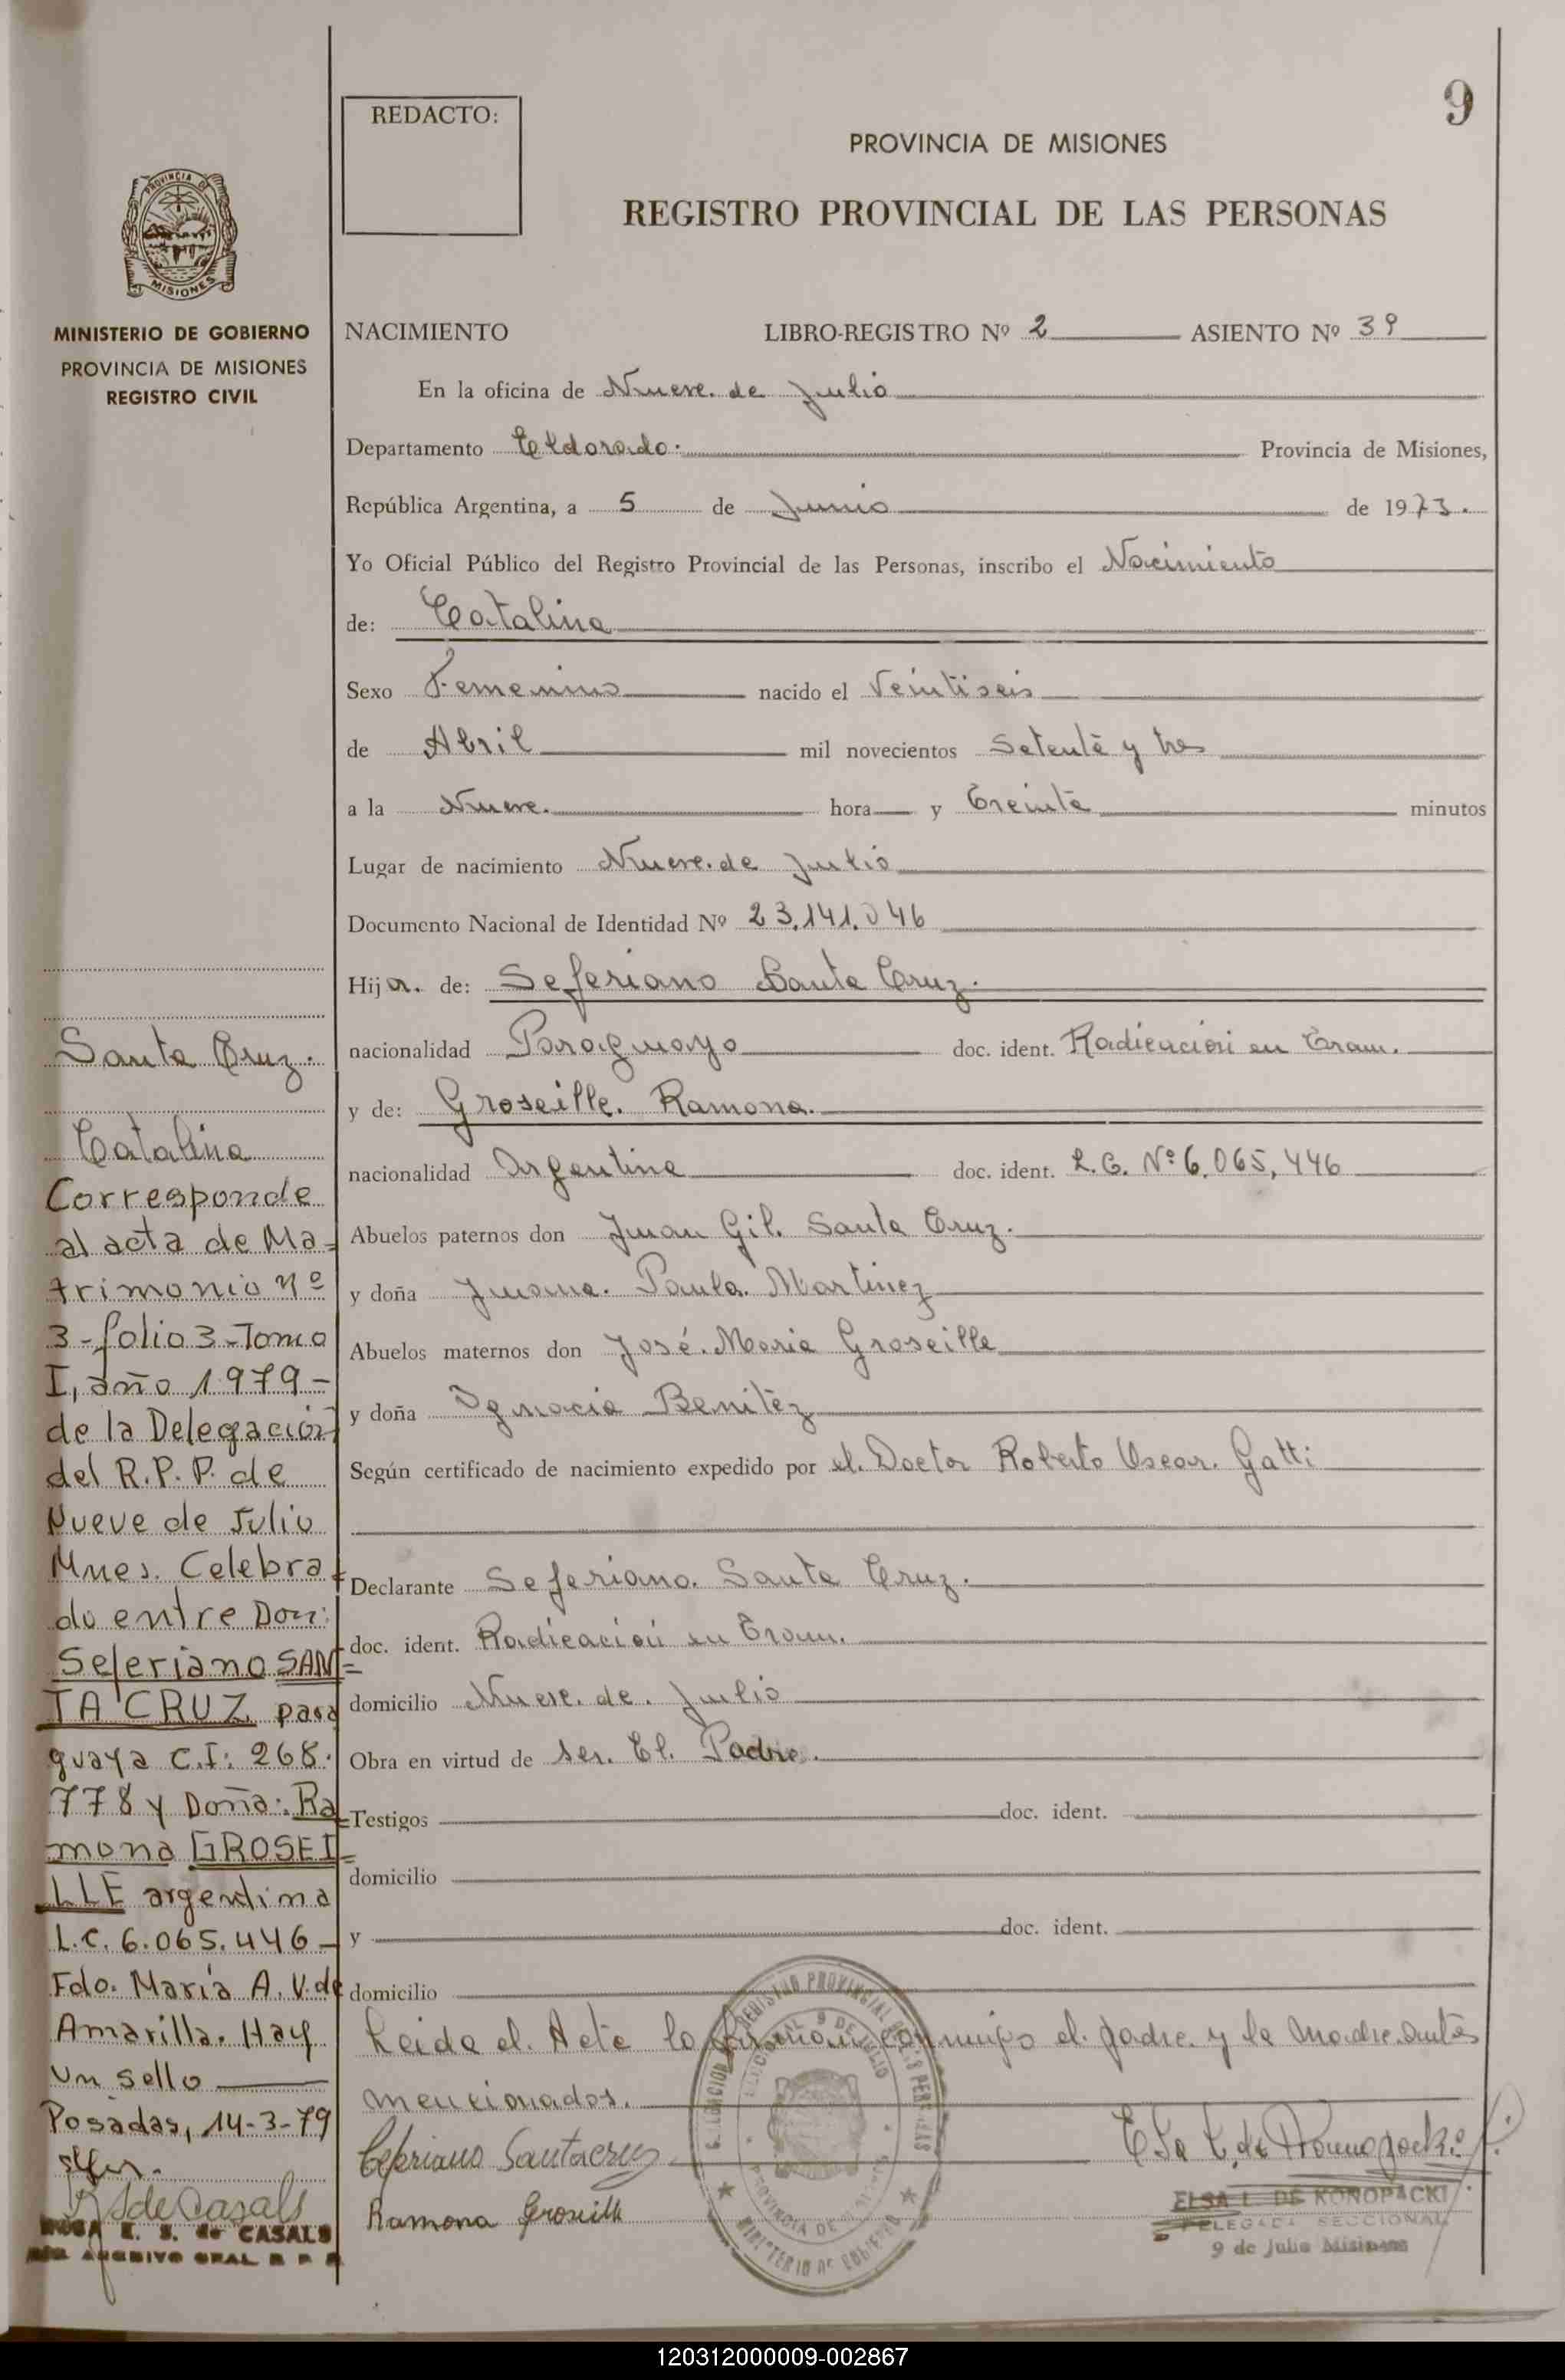 9
REDACTO:
PROVINCIA DE MISIONES
REGISTRO PROVINCIAL DE LAS PERSONAS
PROVINCIA DE
MISIONES
MINISTERIO DE GOBIERNO
PROVINCIA DE MISIONES
REGISTRO CIVIL
NACIMIENTO LIBRO-REGISTRO Nº 2 ASIENTO Nº 39
En la oficina de Nueve de Julio
Departamento Eldorado. Provincia de Misiones,
República Argentina, a 5 de Junio de 1973.
Yo Oficial Público del Registro Provincial de las Personas, inscribo el Nacimiento
de: Catalina
Sexo Femenino nacido el Veintiseis
de Abril mil novecientos Setenta y tres
a la Nueve. hora y Treinta minutos
Lugar de nacimiento Nueve de Julio
Documento Nacional de Identidad Nº 23.141.046
Hija. de: Seferiano Santa Cruz.
nacionalidad Paraguayo doc. ident. Radicación en Tram.
y de: Groseille. Ramona.
nacionalidad Argentina doc. ident. L.C. Nº 6.065,446
Abuelos paternos don Juan Gil. Santa Cruz.
y doña Juana. Paula. Martinez
Abuelos maternos don José. Maria Groseille
y doña Ignacia Benitez
Según certificado de nacimiento expedido por el. Doctor Roberto Oscar. Gatti
Declarante Seferiano. Santa Cruz.
doc. ident. Radicación en Tram.
domicilio Nueve. de. Julio
Obra en virtud de ser. El. Padre.
Testigos doc. ident.
domicilio
y doc. ident.
domicilio
Leida el. Acta lo firman conmigo el. padre. y la Madre. antes
mencionados.
Cepriano Santacruz
Ramona Groseille
ELSA L. DE KONOPACKI
DELEGADA SECCIONAL
9 de Julio Misiones
Santa Cruz.
Catalina
Corresponde
al acta de Ma=
trimonio nº
3-folio 3-Tomo
I, año 1979-
de la Delegación
del R.P.P. de
Nueve de Julio
Mnes. Celebra=
do entre Don:
Seferiano SAN=
TA CRUZ para
guaya C.I: 268.
778 y Doña: Ra=
mona GROSEI=
LLE argentina
L.C. 6.065.446-
Fdo. María A. V. de
Amarilla. Hay
un sello
Posadas, 14-3-79
E. S. de CASALS
ARCHIVO GRAL R P P
120312000009-002867